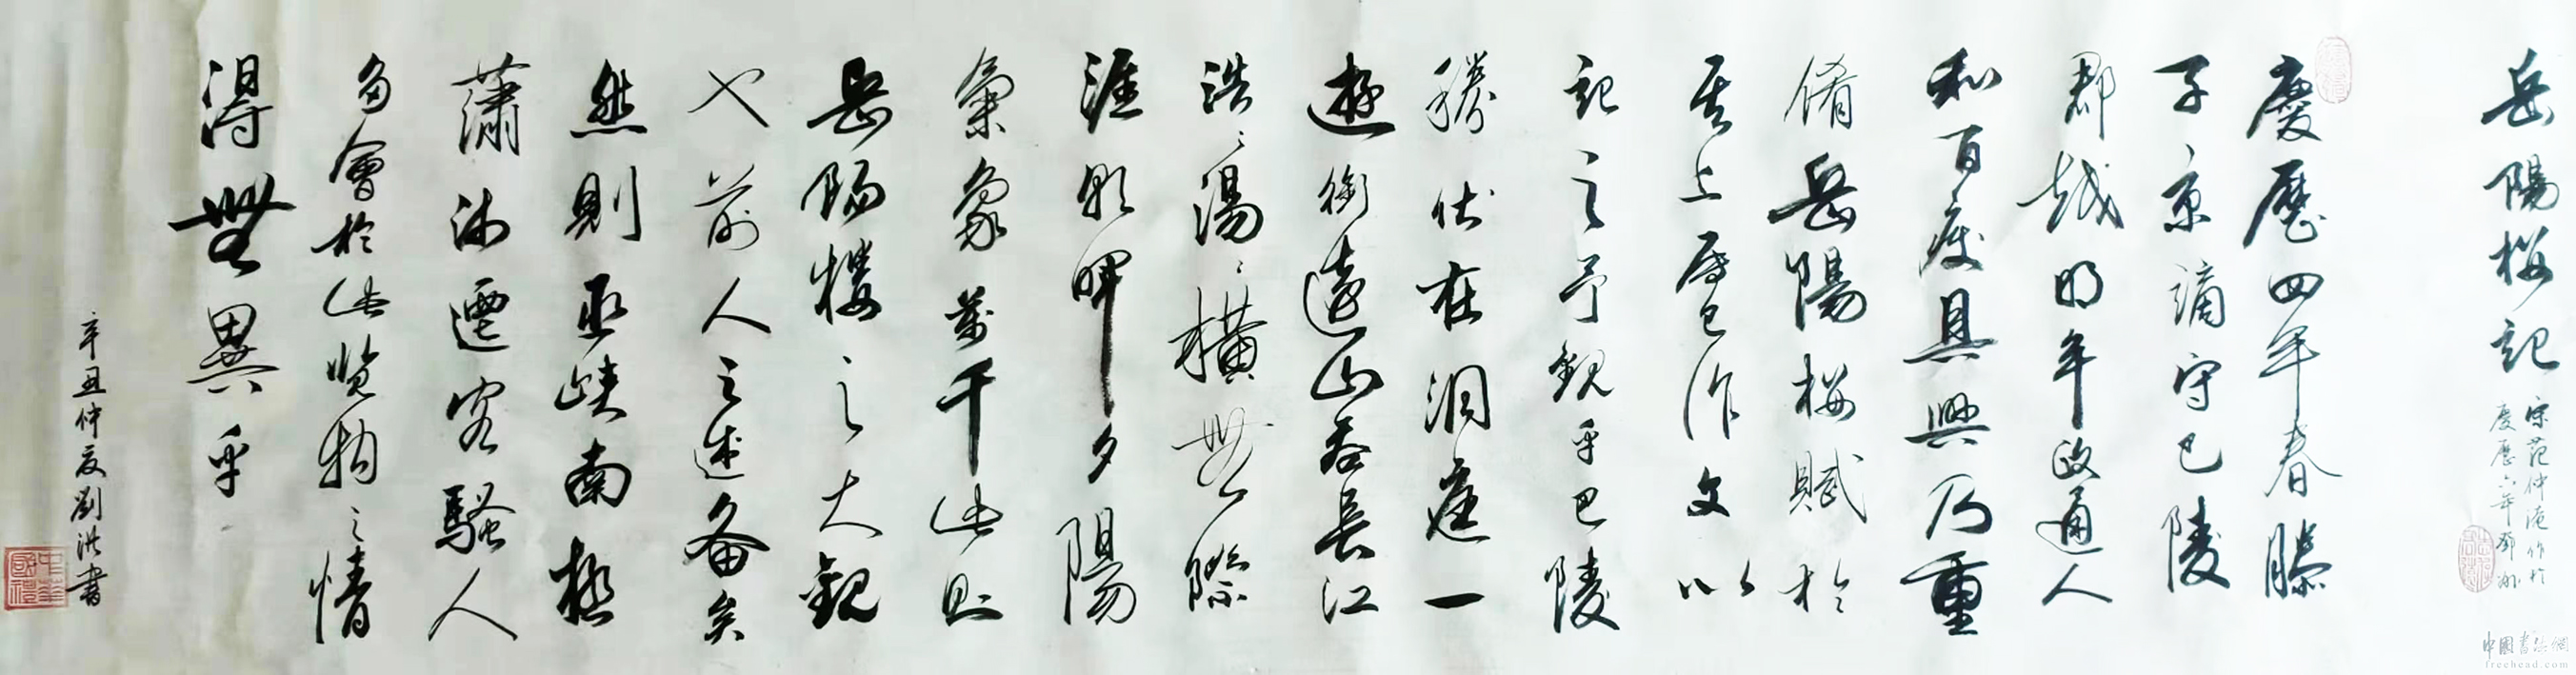 岳陽樓記
宋范仲淹作於
慶歷六年鄧州
慶歷四年春滕
子京謫守巴陵
郡越明年政通人
和百廢具興乃重
脩岳陽樓賦於
其上屬已作文以
記之予觀乎巴陵
勝狀在洞庭一
遊銜遠山吞長江
浩〻湯〻橫無際
涯朝暉夕陽
氣象萬千此则
岳陽樓之大觀
也前人之述备矣
然則巫峽南極
蕭湘遷客騷人
多會於此览物之情
得無異乎
辛丑仲夏劉洪書
中華國禮
中国书法網
freehead.com